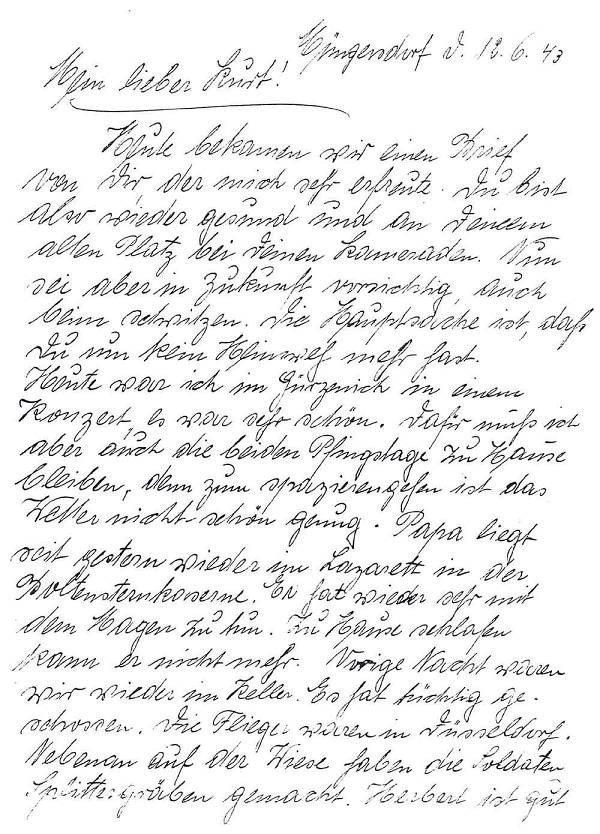 Müngersdorf d. 12.6.43
Mein lieber Kurt!
Heute bekamen wir einen Brief
von Dir, der mich sehr erfreute. Du bist
also wieder gesund und an Deinem
alten Platz bei Deinen Kameraden. Nun
sei aber in Zukunft vorsichtig, auch
beim schwitzen. Die Hauptsache ist, daß
Du nun kein Heimweh mehr hast.
Heute war ich im Gürzenich in einem
Konzert, es war sehr schön. Dafür muß ich
aber auch die beiden Pfingstage zu Hause
bleiben, denn zum spazierengehen ist das
Wetter nicht schön genug. Papa liegt
seit gestern wieder im Lazarett in der
Boltensternkaserne. Er hat wieder sehr mit
dem Magen zu tun. Zu Hause schlafen
kann er nicht mehr. Vorige Nacht waren
wir wieder im Keller. Es hat tüchtig ge-
schossen. Die Flieger waren in Düsseldorf.
Nebenan auf der Wiese haben die Soldaten
Splittergräben gemacht. Herbert ist gut